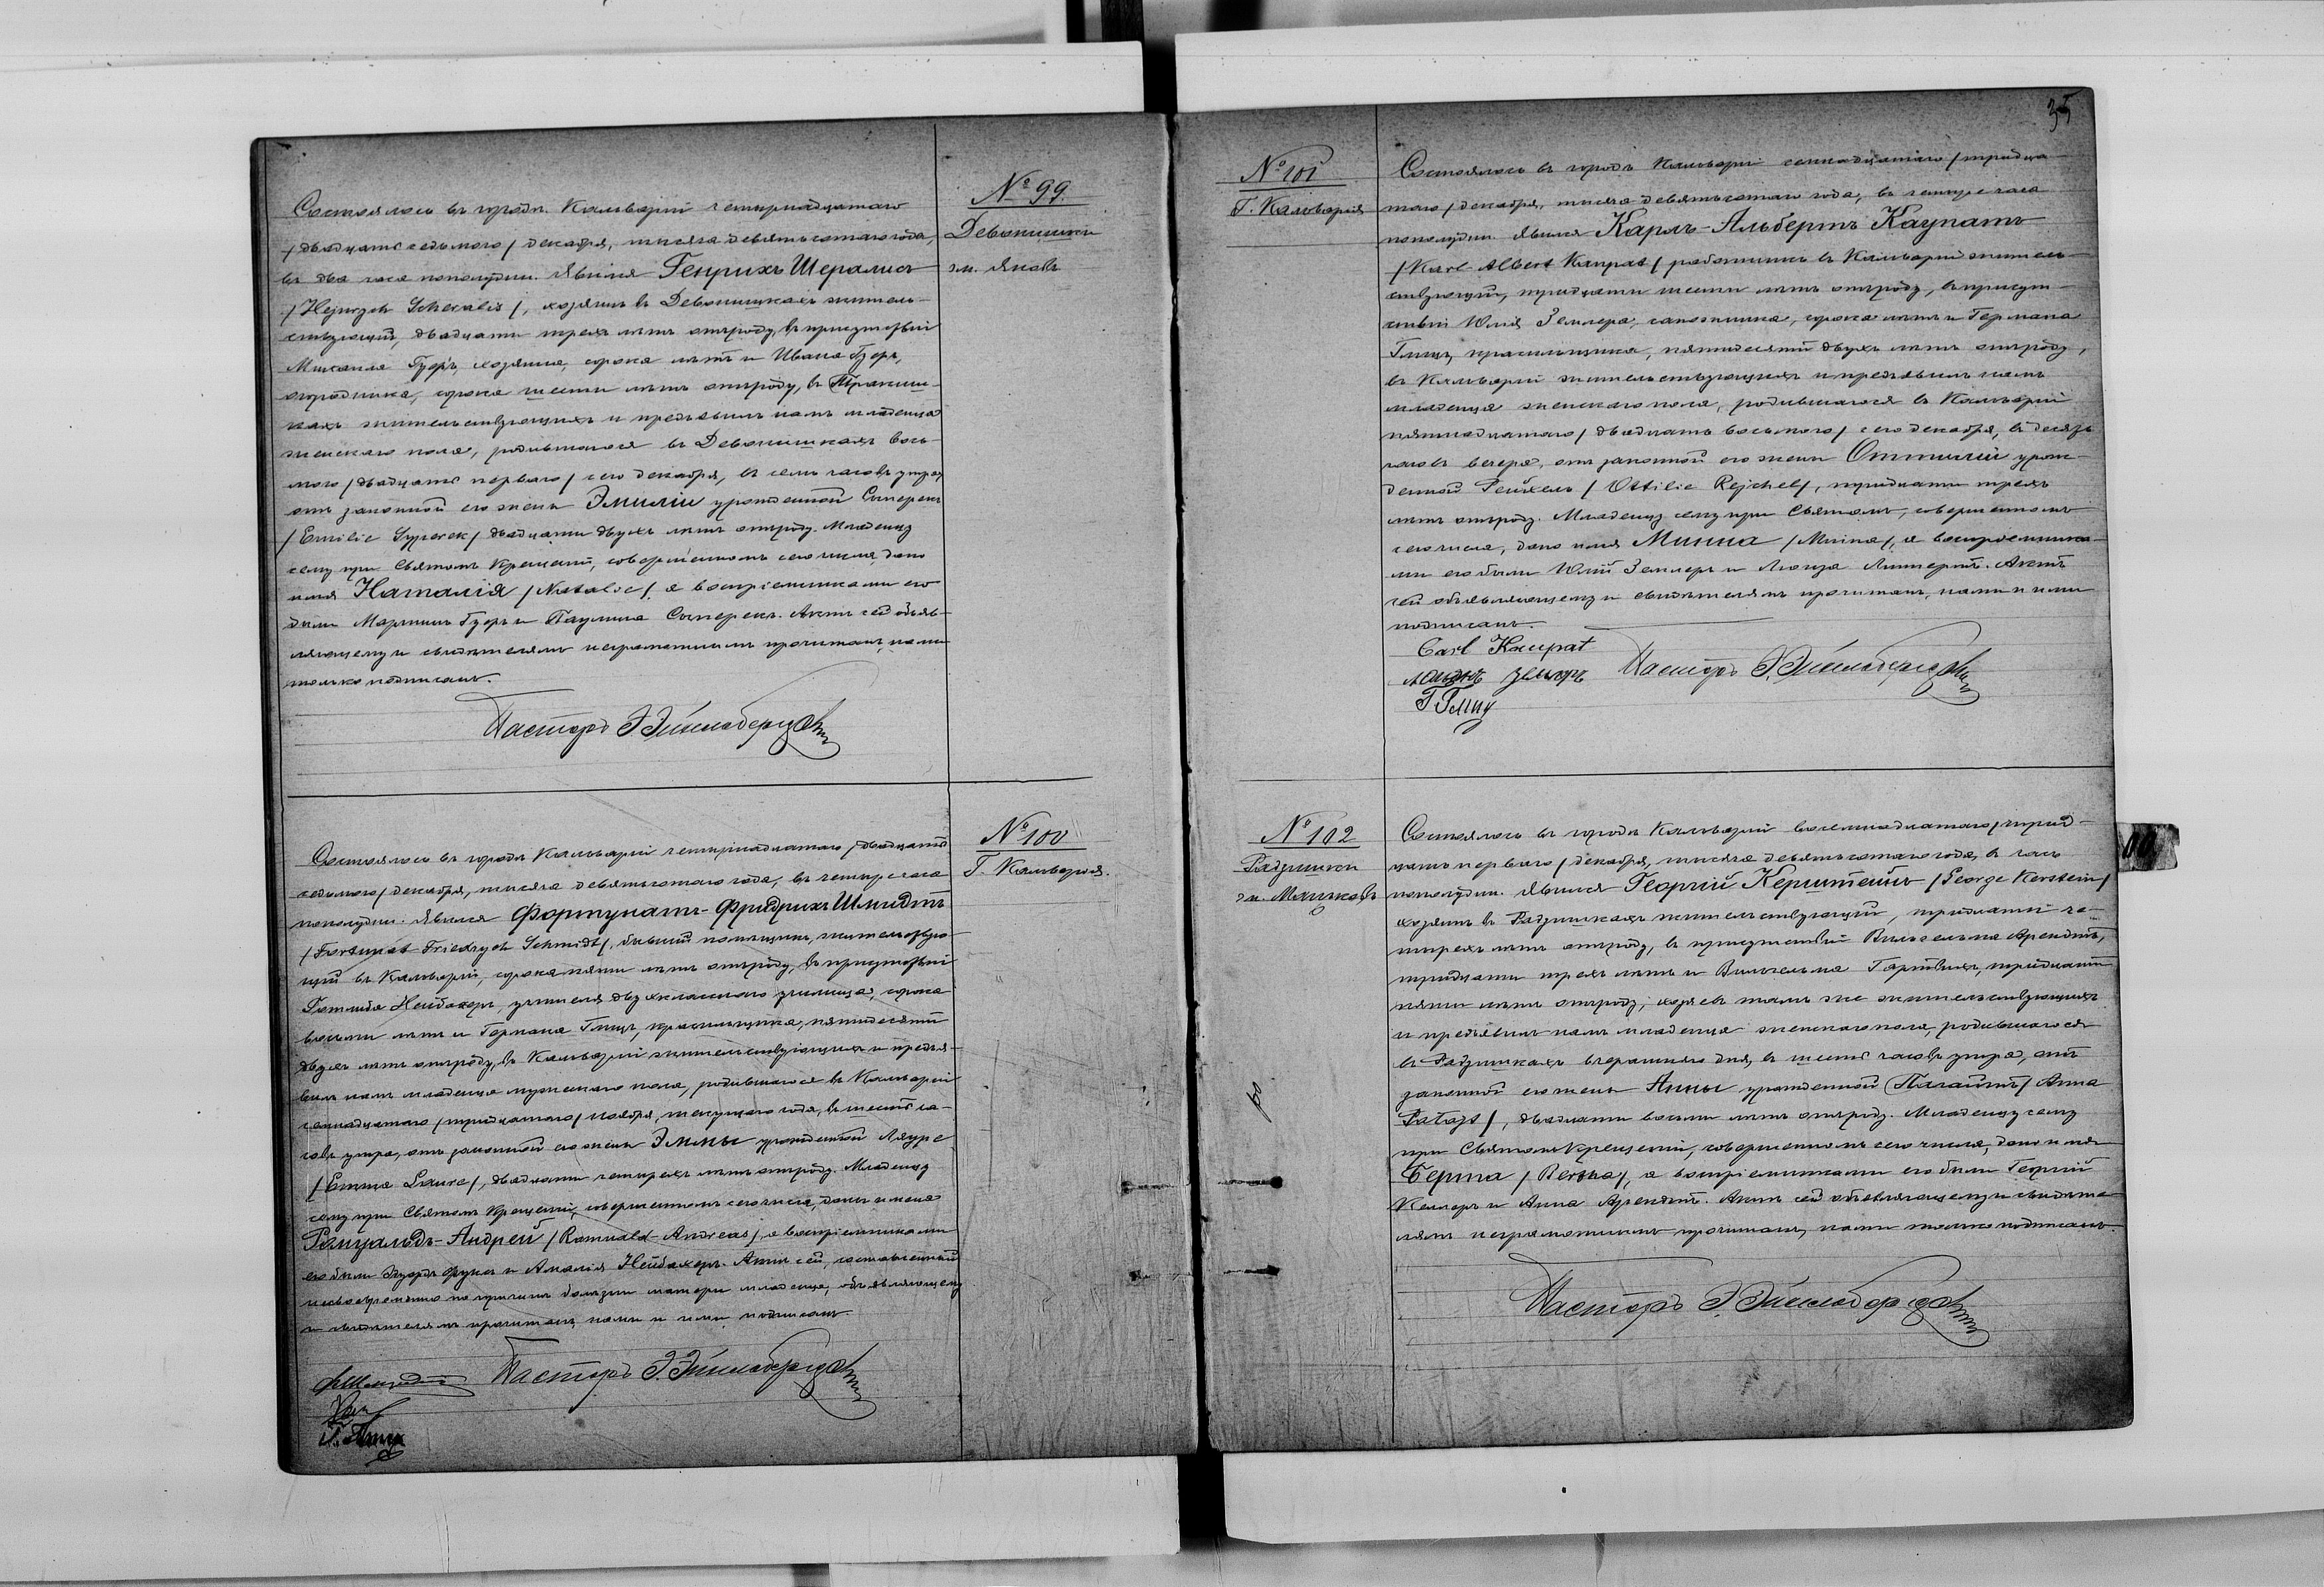 № 99.
Девонишки
гм. Яновъ
Состоялось въ городѣ Кальваріи четырнадцатаго
/двадцать седьмого/ декабря, тысяча девятьсотаго года,
въ два часа пополудни. Явился Генрихъ Шералисъ
/Hejnrych Scheralis/, хозяинъ въ Девонишкахъ житель-
ствующій, двадцати трехъ лѣтъ отъ роду, въ присутствіи
Михаила Гуоръ, хозяина, сорока лѣтъ и Ивана Гуоръ,
огородника, сорока шести лѣтъ отъ роду, въ Тракиш-
кахъ жительствующихъ и предъявилъ намъ младенца
женскаго пола, родившагося въ Девонишкахъ вось-
мого /двадцать перваго/ сего декабря, въ семь часовъ утра,
отъ законной его жены Эмиліи урожденной Сыперекъ
/Emilie Syperek/ двадцати двухъ лѣтъ отъ роду. Младенцу
сему при Святомъ Крещеніи, совершенномъ сего числа, дано
имя Наталія /Natalie/, а воспріемниками его
были Мартинъ Гуоръ и Паулина Сыперекъ. Актъ сей объяв-
ляющему и свидѣтелямъ неграмотнымъ прочитанъ, нами
только подписанъ.
Пасторъ Э.
№ 100
Г. Кальварія.
Состоялось въ городѣ Кальваріи четырнадцатаго /двадцать
седьмого/ декабря, тысяча девятьсотаго года, въ четыре часа
пополудни. Явился Фортунатъ-Фридрихъ Шмидтъ
/Fortunat Friedrych Schmidt/, бывшій помѣщикъ, жительствую-
щій въ Кальваріи, сорока пяти лѣтъ отъ роду, въ присутствіи
Готлиба Нейбахеръ, учителя двухкласснаго училища, сорока
восьми лѣтъ и Германа Глицъ, красильщика, пятидесяти
двухъ лѣтъ отъ роду, въ Кальваріи жительствующихъ и предъя-
вилъ намъ младенца мужескаго пола, родившагося въ Кальваріи
семнадцатаго /тридцатаго/ ноября, текущаго года, въ шесть ча-
совъ утра, отъ законной его жены Эммы урожденной Лауре
/Emma Laure/, двадцати четырехъ лѣтъ отъ роду. Младенцу
сему при Святомъ Крещеніи, совершенномъ сего числа, даны имена
Ромуальдъ-Андрей /Romuald-Andreas/, а воспріемниками
его были Эдуардъ Фуксъ и Амалія Нейбахеръ. Актъ сей, составленный
несвоевременно по причинѣ болѣзни матери младенца, объявляющему
и свидѣтелямъ прочитанъ, нами и ими подписанъ.
Пасторъ Э.
35
№ 101
Г. Кальварія
Состоялось въ городѣ Кальваріи семнадцатаго /тридца-
таго/ декабря, тысяча девятьсотаго года, въ четыре часа
пополудни. Явился Карлъ-Альбертъ Каупатъ
/Karl Albert Kaupat/ работникъ въ Кальваріи житель-
ствующій, тридцати шести лѣтъ отъ роду, въ присут-
ствіи ЮліяЗемлера, сапожника, сорока лѣтъ и Германа
Глицъ, красильщика, пятидесяти двухъ лѣтъ отъ роду,
въ Кальваріи жительствующихъ и предъявилъ намъ
младенца женскаго пола, родившагося въ Кальваріи
пятнадцатаго /двадцать восьмого/ сего декабря, въ десять
часовъ вечера, отъ законной его жены Оттиліи урож-
денной Рейхель /Ottilie Rejchel/, тридцати трехъ
лѣтъ отъ роду. Младенцу сему при Святомъ, совершенномъ
сего числа, дано имя Минна /Minna/, а воспріемника-
ми его были Юлій Землеръ и Луиза Липпертъ. Актъ
сей объявляющему и свидѣтелямъ прочитанъ, нами и ими
подписанъ.
Carl Kaupat
Пасторъ Э.
Г Глиц
№ 102
Радзишки
гм. Михновъ
Состоялось въ городѣ Кальваріи восемнадцатаго /трид-
цать перваго/ декабря, тысяча девятьсотаго года, въ часъ
пополудни. Явился Георгій Керштейнъ /George Kerstein/
хозяинъ въ Радзишкахъ жительствующій, тридцати че-
тырехъ лѣтъ отъ роду, въ присутствіи Вильгельма Арендтъ,
тридцати трехъ лѣтъ и Вильгельма Гартвихъ, тридцати
пяти лѣтъ отъ роду, хозяевъ тамъ же жительствующихъ
и предъявилъ намъ младенца женскаго пола, родившагося
въ Радзишкахъ вчерашняго дня, въ шесть часовъ утра, отъ
законной его жены Анны урожденной Патайтъ /Anna
Patajt/, двадцати восьми лѣтъ отъ роду. Младенцу сему
при Святомъ Крещеніи, совершенномъ сего числа, дано имя
Берта /Berta/, а воспріемниками его были Георгій
Келлеръ и Анна Арендтъ. Актъ сей объявляющему и свидѣте-
лямъ неграмотнымъ прочитанъ, нами только подписанъ.
Пасторъ Э.